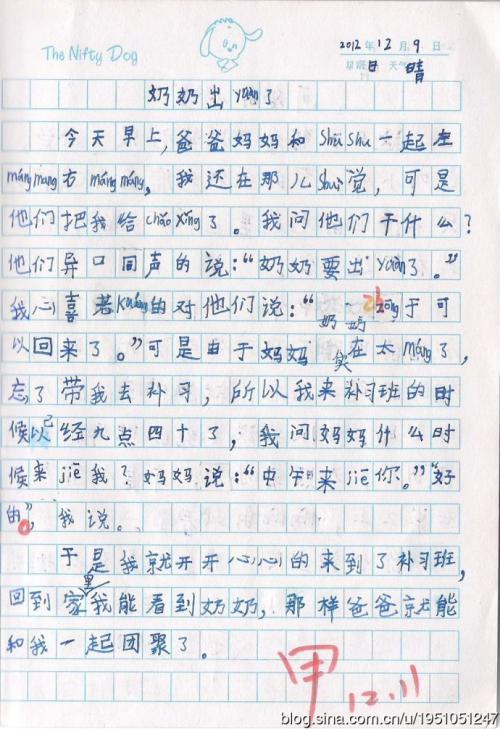 The Nifty Dog
2012年12月9日
星期日 天气晴
奶奶出yuàn了
今天早上,爸爸妈妈和Shūshu一起左
máng mang右máng máng,我还在那儿Shuì觉,可是
他们把我给chǎo xǐng了。我问他们干什么?
他们异口同声的说:“奶奶要出yuàn了。”
我心喜若kuáng的对他们说:“奶奶zhōng于可
以回来了。”可是由于妈妈实在太máng了,
忘了带我去补习,所以我来补习班的时
候已经九点四十了,我问妈妈什么时
候来jiē我?妈妈说:“中午来jiē你。”“好
的”,我说。
于是我就开开心心的来到了补习班,
回到家里我能看到奶奶,那样爸爸就能
和我一起团聚了。
甲 12.11
blog.sina.com.cn/u/1951051247